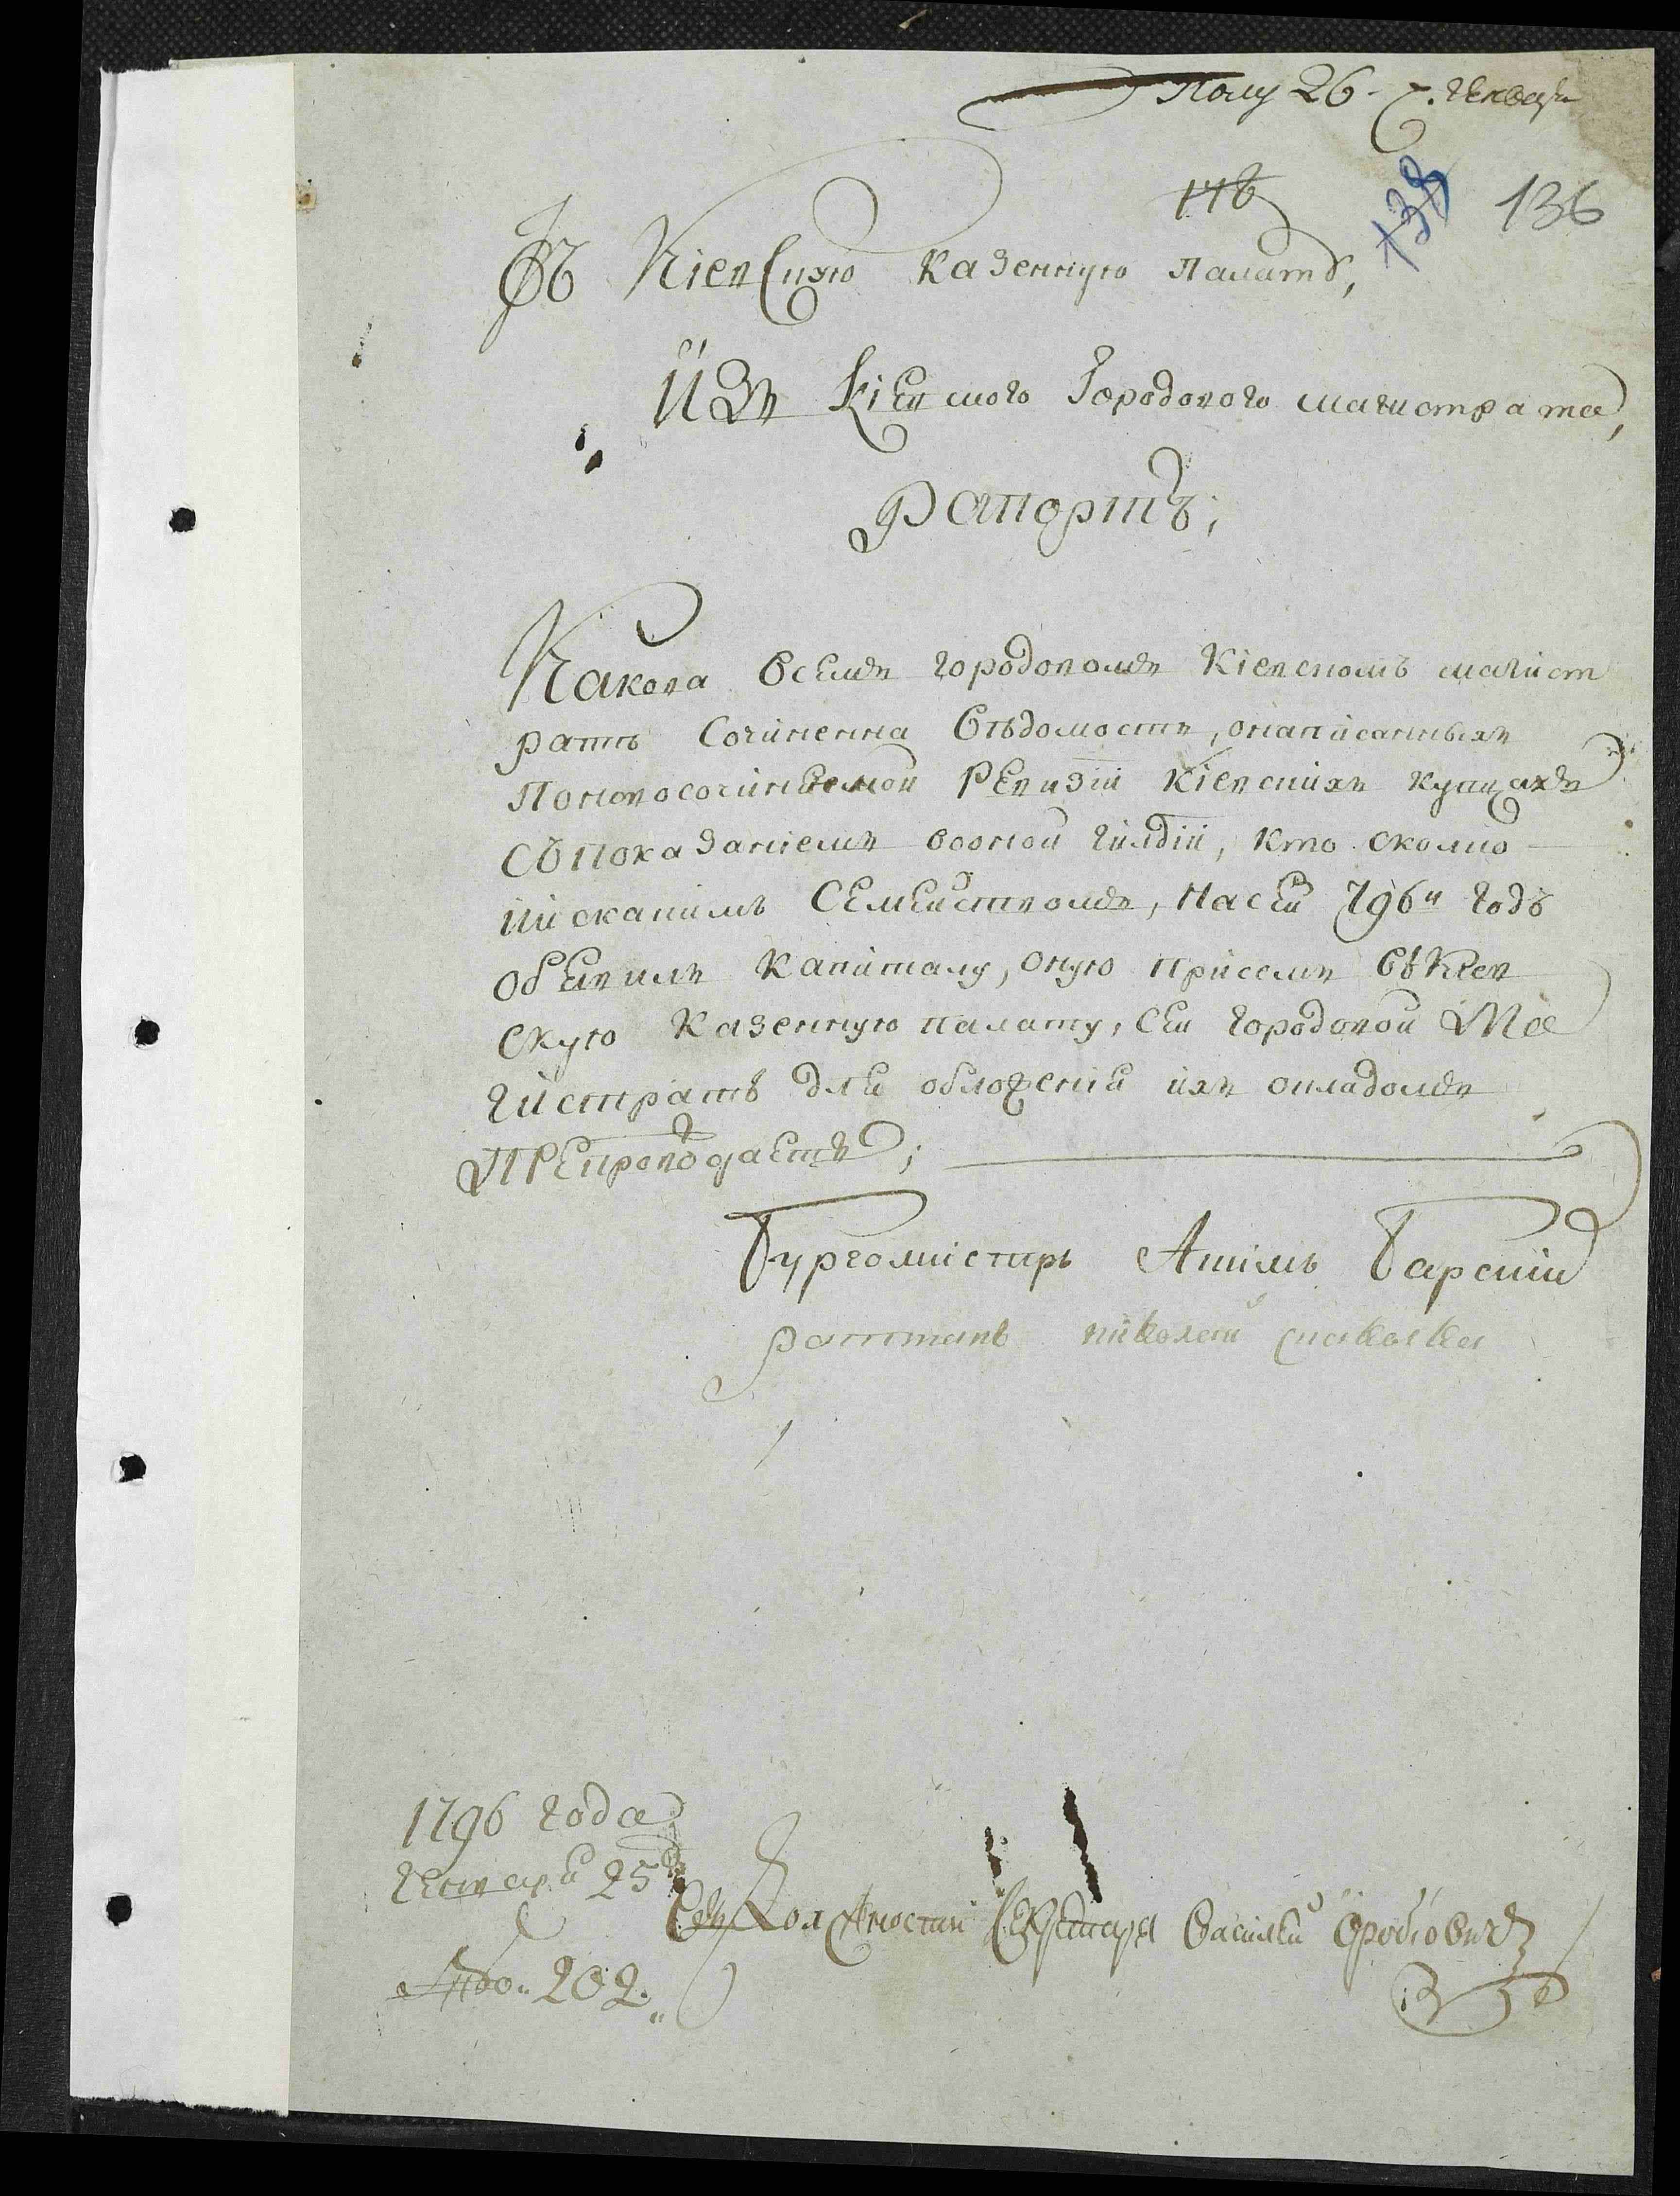 Полу 26 Генваря
148
138
136
Въ Кіевскую казенную палатъ,
Изъ Кіевского Городового магистрата,
Рапортъ;
Какова всемъ городовомъ Кіевскомъ магист
ратѣ Сочиненна вѣдомость, онаписанныхъ
Поновосочиняемой Ревизіи Кіевскихъ купцахъ
Съпоказаніемъ вооной гилдіи, кто сколко
и искакимъ Семействомъ, насей 796й годъ
обевилъ капиталу, оную присемъ въКіев
скую казенную палату, Сей городовой Ма
гистратъ для обложенія ихъ окладомъ
препровождаетъ;
Бургомистръ Акимъ Барскій
ратманъ николай
1796 года
генваря 25 д
№ 202
Въ Должности Секретаря Василій